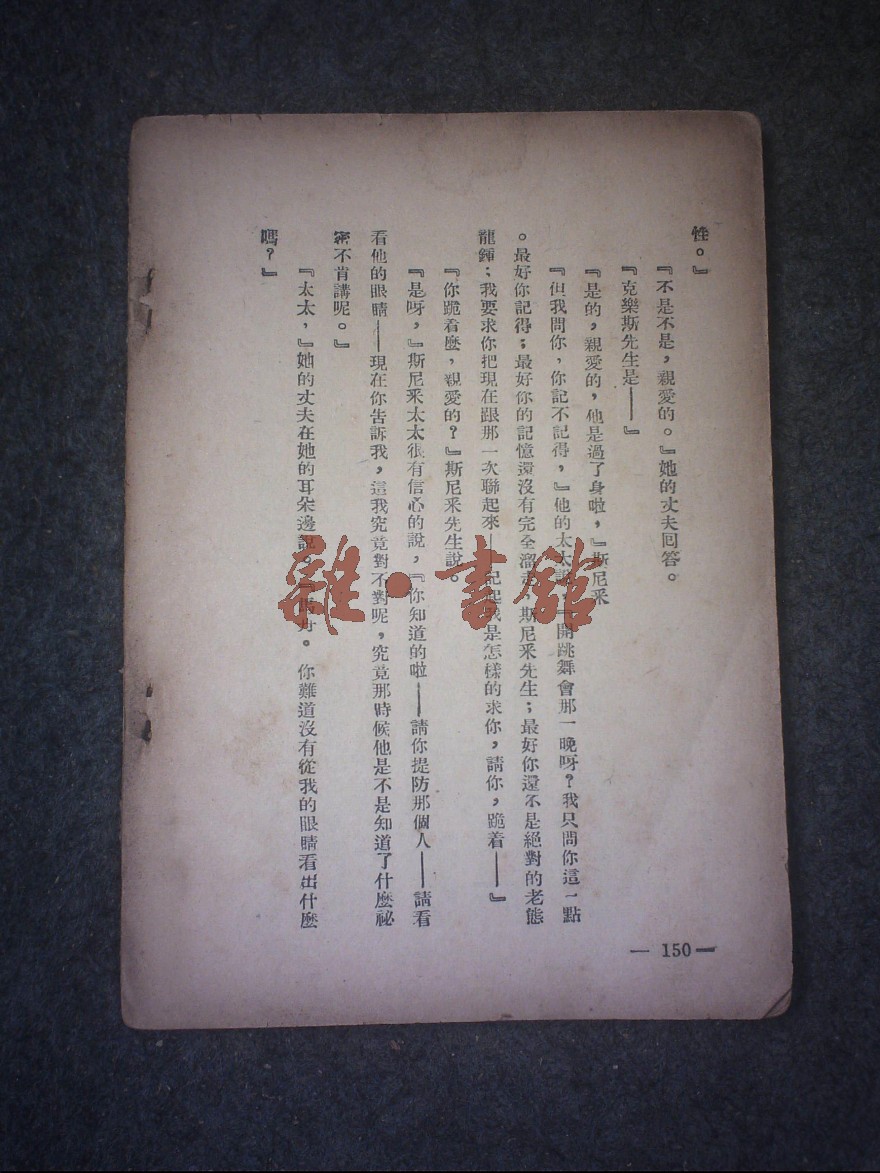 性。』
『不是不是，親愛的。』她的丈夫回答。
『克樂斯先生是——』
『是的，親愛的，他是過了身啦，』斯尼釆
『但我問你，你記不記得，』他的太太說，『開跳舞會那一晚呀？我只問你這一點
。最好你記得；最好你的記憶還沒有完全溜走，斯尼釆先生；最好你還不是絕對的老態
龍鍾；我要求你把現在跟那一次聯起來—記起我是怎樣的求你，請你，跪着——』
『你跪着麼，親愛的？』斯尼釆先生說。
『是呀，』斯尼釆太太很有信心的說，『你知道的啦——請你提防那個人——請看
看他的眼睛——現在你告訴我，這我究竟對不對呢，究竟那時候他是不是知道了什麼祕
密不肯講呢。』
『太太，』她的丈夫在她的耳朵邊說。 。 你難道沒有從我的眼睛看出什麼
嗎？』
— 150 —
雜·書館